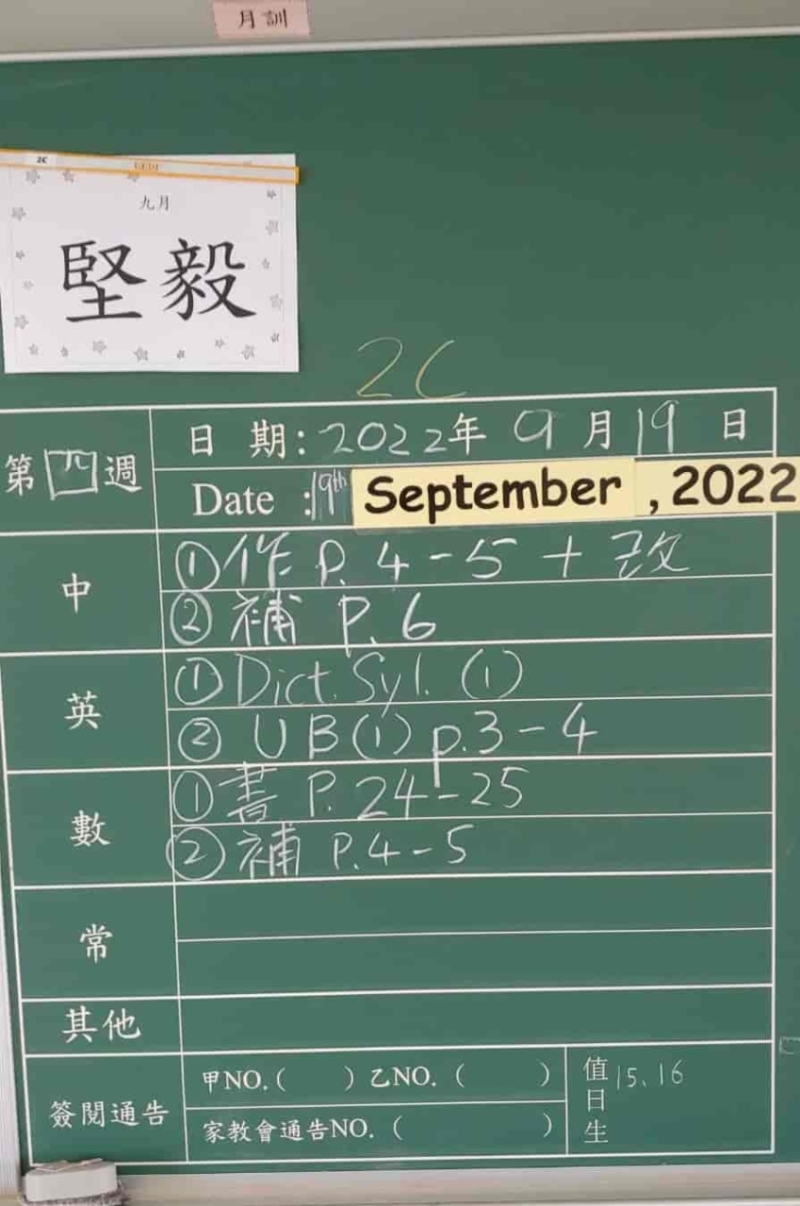 月訓
2C
九月
堅毅
2C
第四週
日期：2022年9月19日
Date：19th September, 2022
中
①作 P.4-5 + 改
②補 P.6
英
①Dict. Syl. (1)
②UB(1) p.3-4
數
①書 P.24-25
②補 P.4-5
常
其他
簽閱通告
甲NO.(　　)乙NO.(　　)
家教會通告NO.(　　)
值日生 15、16